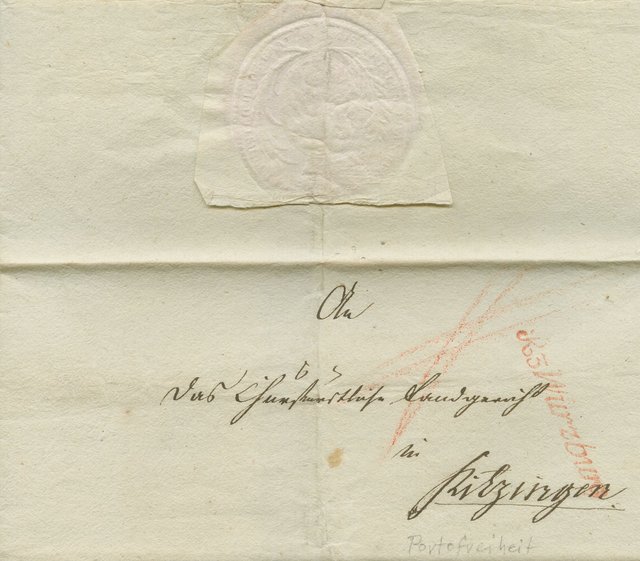 An
das Churfürstliche Landgericht
in
Kitzingen.
R3 Wurzburg
Portofreiheit